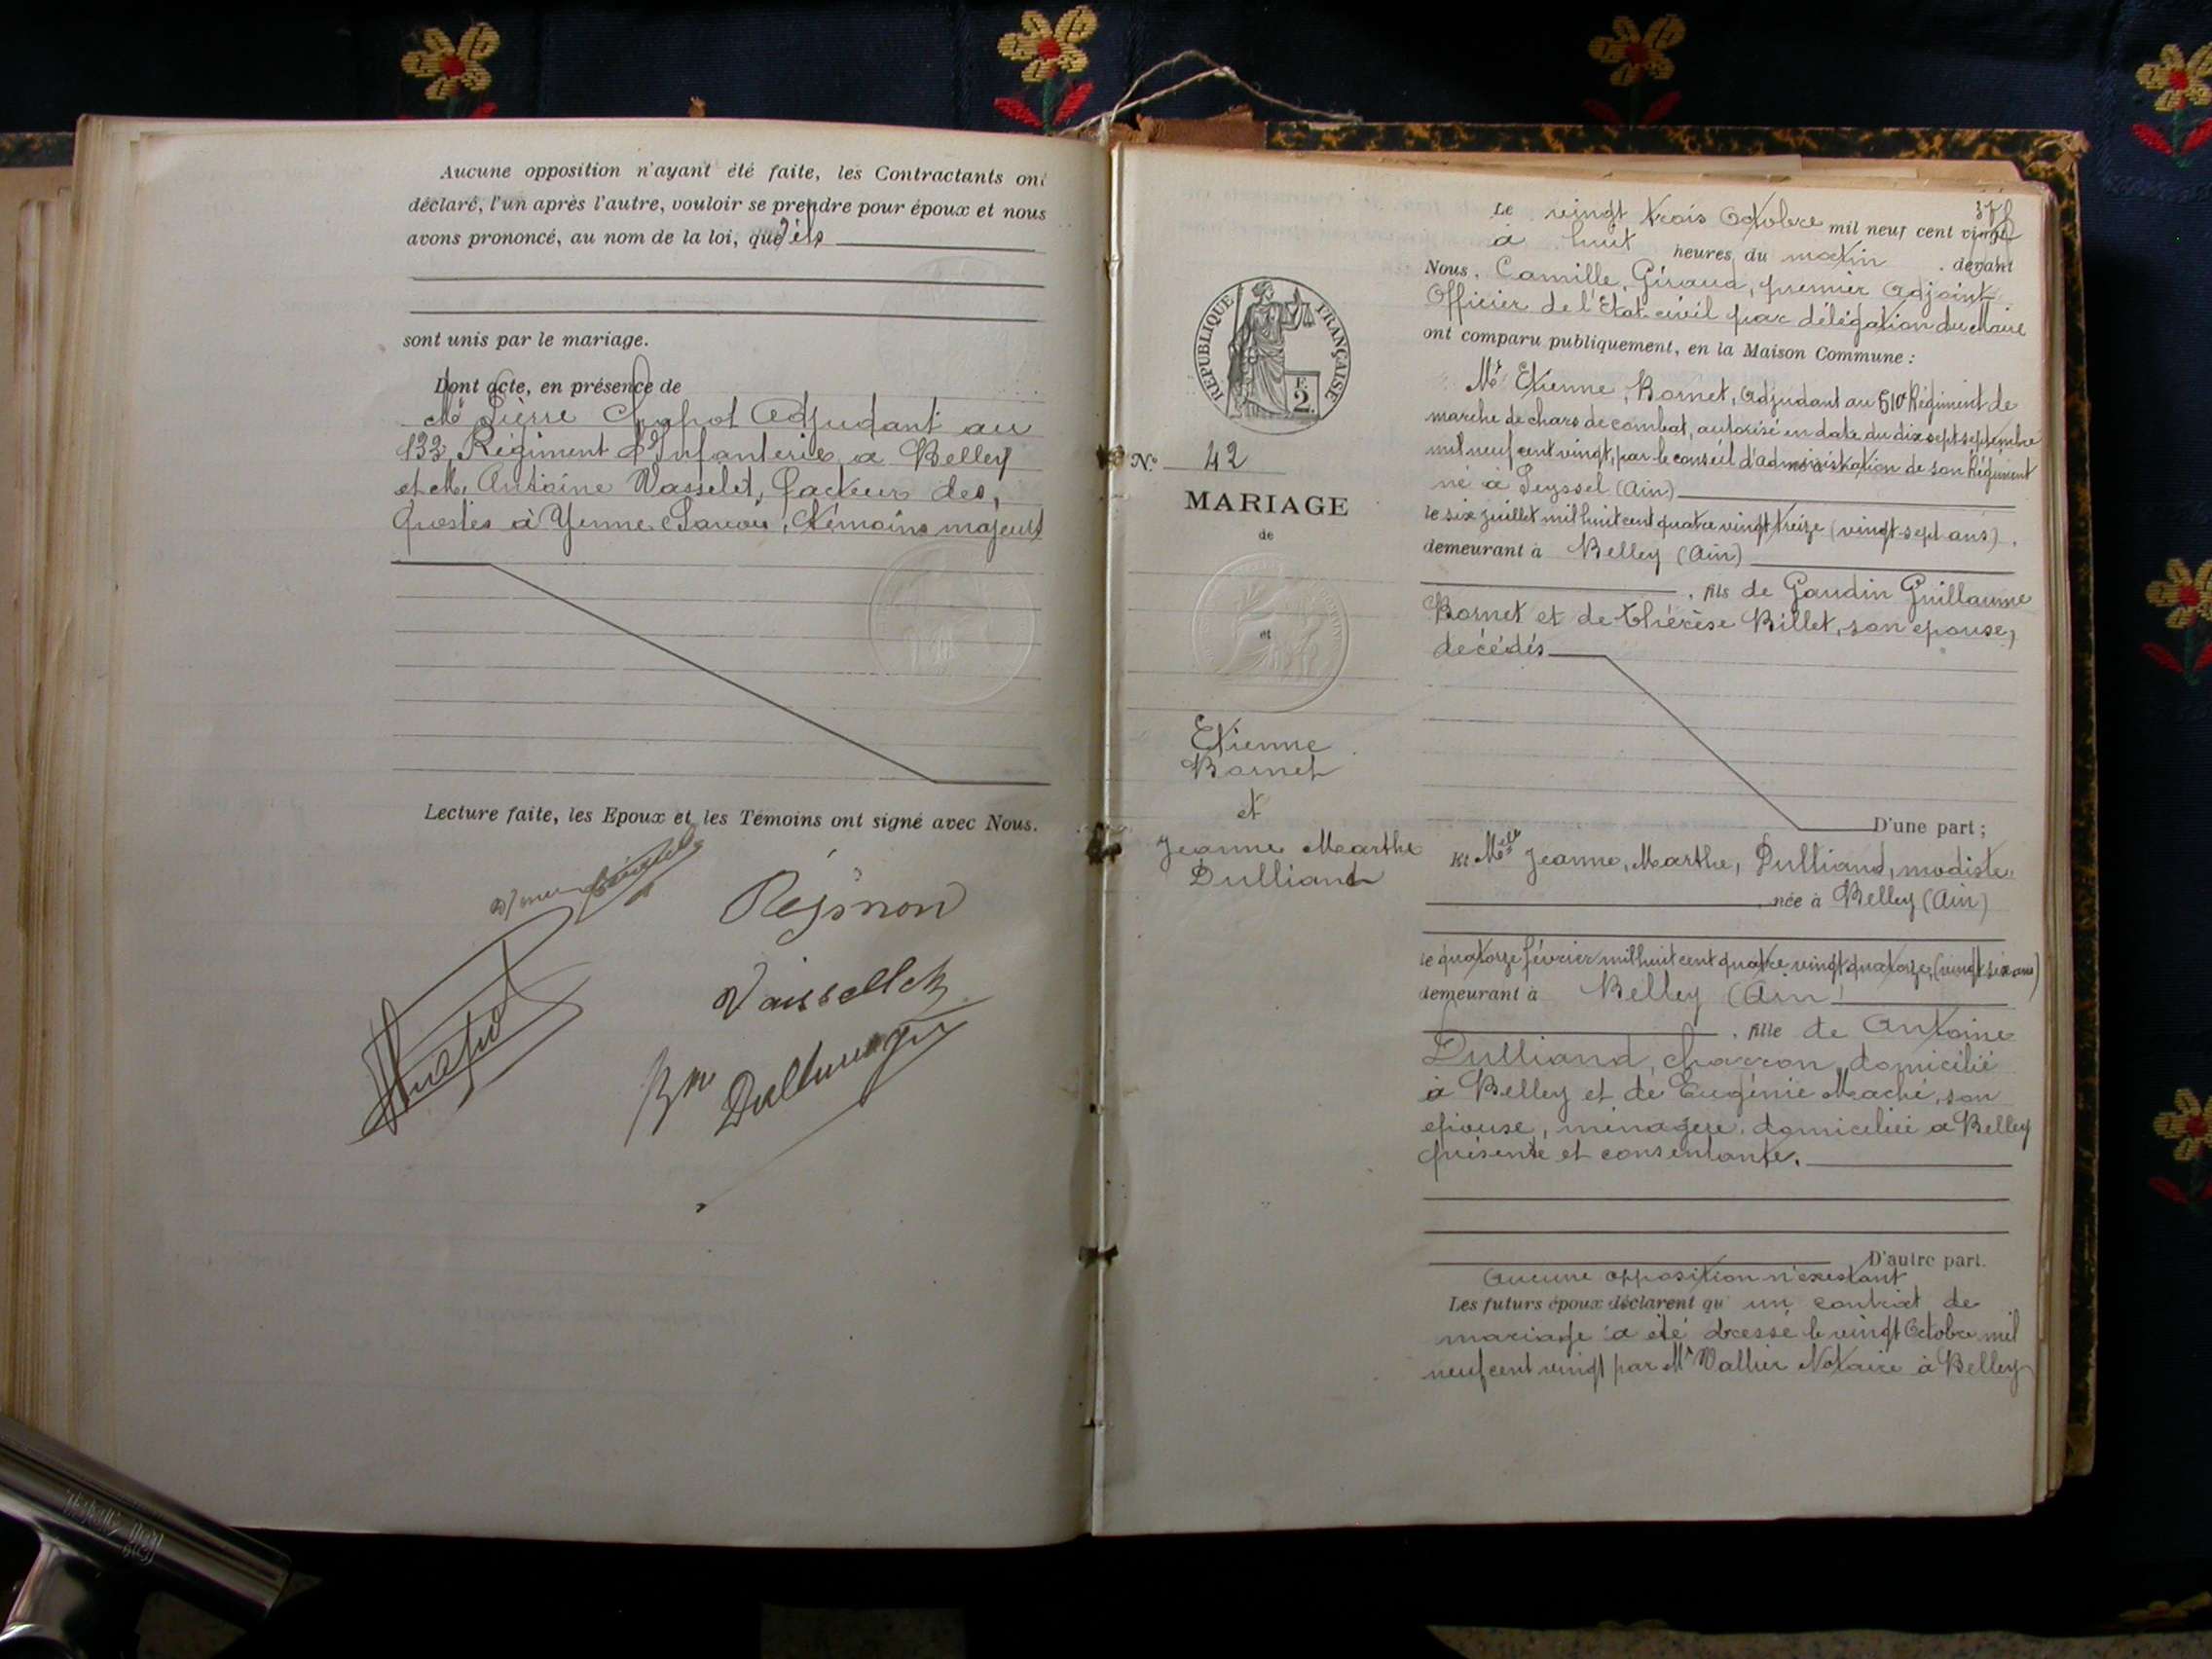 Aucune opposition n'ayant été faite, les Contractants ont
déclaré, l'un après l'autre, vouloir se prendre pour époux et nous
avons prononcé, au nom de la loi, qu'ils
sont unis par le mariage.
Dont acte, en présence de
Mr Pierre Chapot Adjudant au
133e Régiment d'Infanterie, à Belley
et M. Antoine Vasselet, facteur des
postes à Yenne (Savoie), témoins majeurs
Lecture faite, les Epoux et les Témoins ont signé avec Nous.
Le vingt trois Octobre mil neuf cent vingt
à huit heures du matin, devant
Nous, Camille, Giraud, premier Adjoint
Officier de l'Etat-civil par délégation du Maire
ont comparu publiquement, en la Maison Commune :
Mr Etienne, Bornet, Adjudant au 510e Régiment de
marche de chars de combat, autorisé en date du dix sept septembre
mil neuf cent vingt, par le conseil d'administration de son Régiment
né à Seyssel (Ain)
le six juillet mil huit cent quatre vingt treize (vingt-sept ans).
demeurant à Belley (Ain)
, fils de Gaudin Guillaume
Bornet et de Thérèse Billet, son épouse,
décédés
REPUBLIQUE FRANÇAISE
F.
2.
No 42
MARIAGE
de
et
Etienne
Bornet
et
Jeanne Marthe
Dulliand
D'une part ;
Et Melle Jeanne, Marthe, Dulliand, modiste
, née à Belley (Ain)
le quatorze février mil huit cent quatre vingt quatorze, (vingt six ans)
demeurant à Belley (Ain)
, fille de Antoine
Dulliand, charron, domicilié
à Belley et de Eugénie Maché, son
épouse, ménagère, domiciliée à Belley
présente et consentante.
D'autre part.
Aucune opposition n'existant
Les futurs époux déclarent qu'un contrat de
mariage a été dressé le vingt Octobre mil
neuf cent vingt par Me Vallier Notaire à Belley